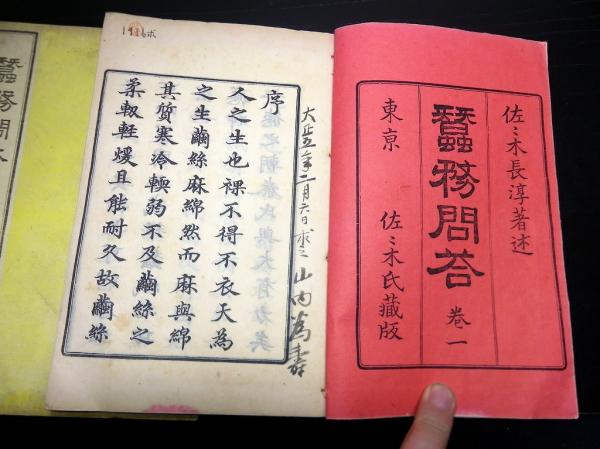 佐〻木長淳著述
蠶務問答 卷一
東京 佐〻木氏藏版
大正五年二月六日求之 山内為壽
序
人之生也裸不得不衣天為
之生繭絲麻綿然而麻與綿
其質寒冷輭弱不及繭絲之
柔靱輕煖且能耐久故繭絲
蠶務問